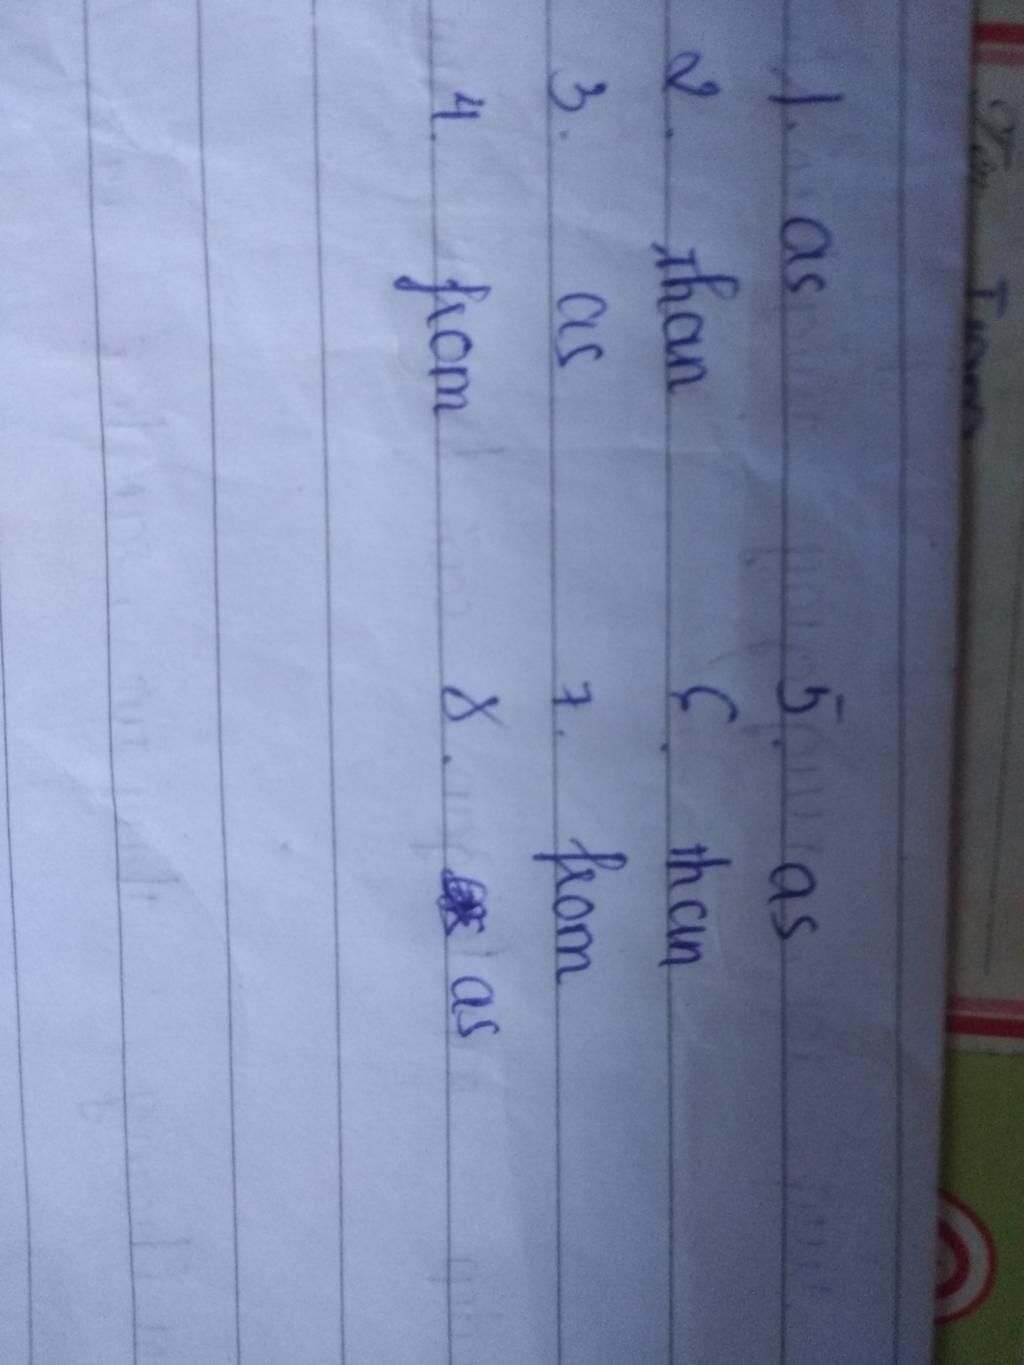 1. as 5. as
2. than 6. than
3. as 7. from
4. from 8. as